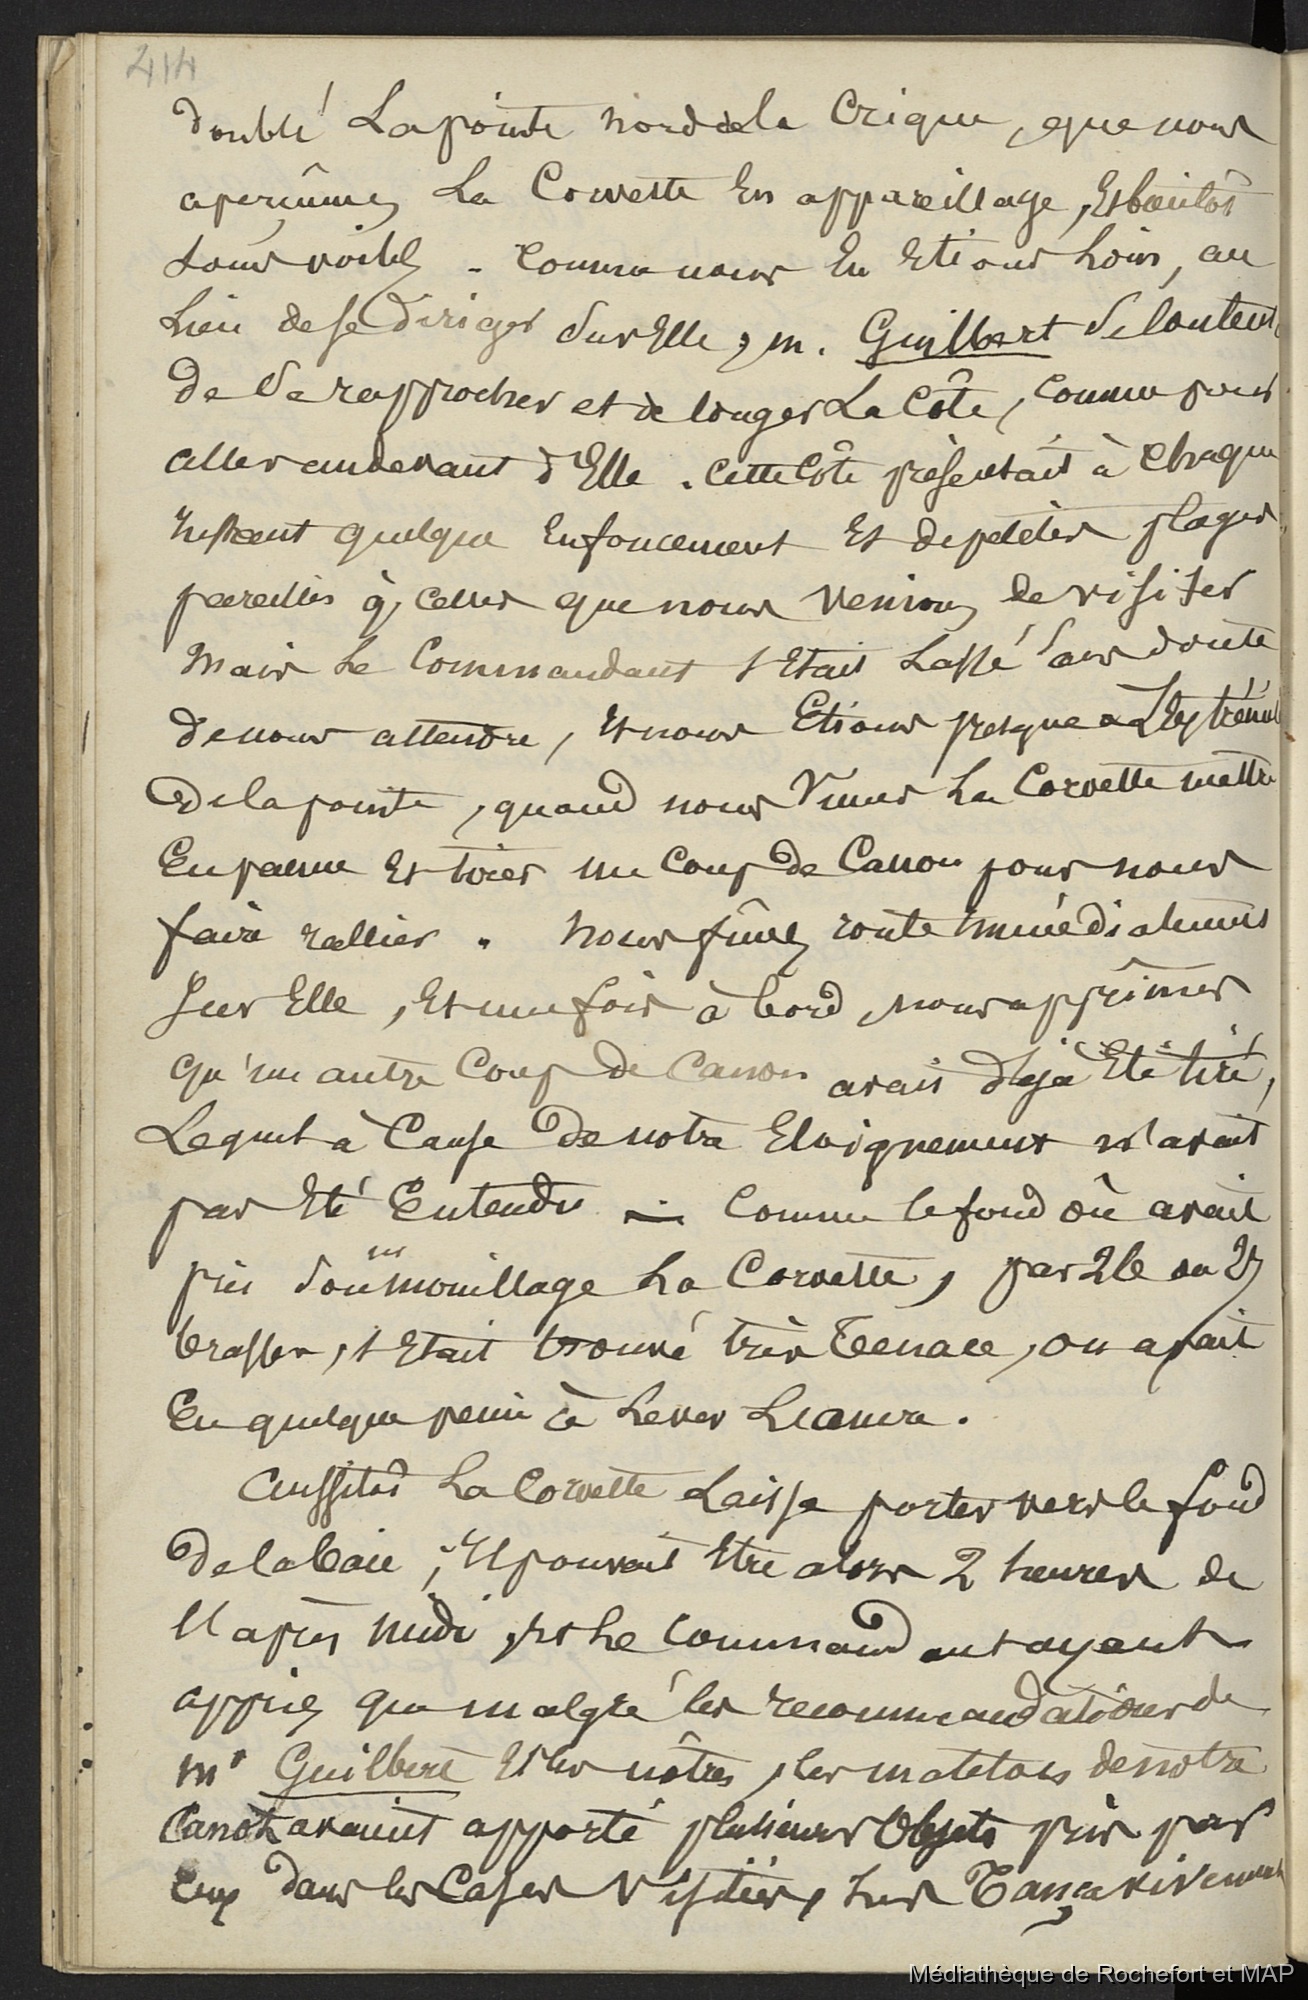 414
doublé La pointe nord de la Crique, que nous
aperçûmes La Corvette En appareillage, Et bientôt
sous voiles - Comme nous En Etions Loin, au
Lieu de se Diriger sur Elle, m. Guilbert se Contenta
De se rapprocher et de longer La Côte, Comme pour
aller au devant d'Elle. Cette Côte présentait à Chaque
Instant quelque Enfoncement Et de petites plages
pareilles à, celles que nous Venions de visiter
Mais Le Commandant s'Etait Lassé sans doute
De nous attendre, Et nous Etions presque à L'Extrémité
De la pointe, quand nous Vimes La Corvette mettre
En panne Et tirer un Coup De Canon pour nous
faire rallier. Nous fîmes route Immédiatement
sur Elle, Et une fois à bord, nous apprîmes
qu'un autre Coup de Canon avait déjà Eté tiré,
Lequel à Cause De notre Eloignement n'avait
pas Eté Entendu — Comme le fond où avait
pris son mouillage La Corvette, par 26 ou 27
brasses, s'Etait trouvé très Tenace, on avait
Eu quelque peine à Lever L'ancre.
Aussitôt La Corvette Laissa porter vers le fond
De la baie; Il pouvait Etre alors 2 heures de
l'après midi, et Le Commandant ayant
appris que malgré les recommandations de
Mr Guilbert Et les nôtres, les matelots de notre
Canot avaient apporté plusieurs Objets pris par
Eux dans les Cases Visitées, Les Tança vivement
Médiathèque de Rochefort et MAP